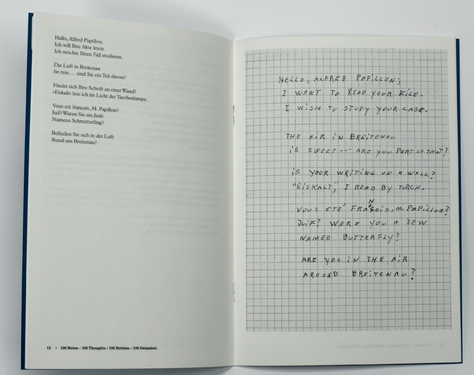 Hallo, Alfred Papillon,
Ich will Ihre Akte lesen.
Ich möchte Ihren Fall studieren.
Die Luft in Breitenau
Ist rein ... sind Sie ein Teil davon?
Findet sich Ihre Schrift an einer Wand?
»Eiskalt« lese ich im Licht der Taschenlampe.
Vous été français, M. Papillon?
Juif? Waren Sie ein Jude
Namens Schmetterling?
Befinden Sie sich in der Luft
Rund um Breitenau?
12 | 100 Notes – 100 Thoughts / 100 Notizen – 100 Gedanken
HELLO, ALFRED PAPILLON,
I WANT TO READ YOUR FILE.
I WISH TO STUDY YOUR CASE.
THE AIR IN BREITENAU
IS SWEET -- ARE YOU PART OF THAT?
IS YOUR WRITING ON A WALL?
"EISKALT", I READ BY TORCH.
VOUS ETE' FRANÇAIS, M. PAPILLON?
JUIF? WERE YOU A JEW
NAMED BUTTERFLY?
ARE YOU IN THE AIR
AROUND BREITENAU?